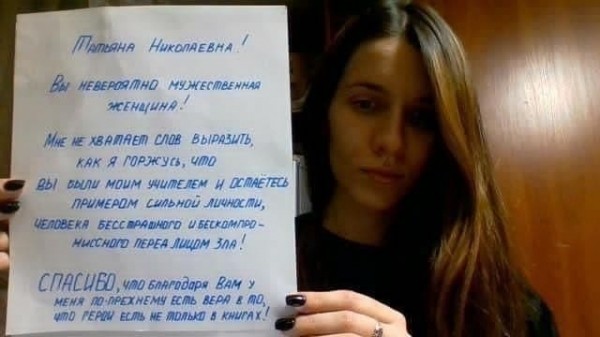 Татьяна Николаевна!
Вы невероятно мужественная
женщина!
Мне не хватает слов выразить,
как я горжусь, что
вы были моим учителем и остаётесь
примером сильной личности,
человека бесстрашного и бескомпро-
миссного перед лицом зла!
СПАСИБО, что благодаря Вам у
меня по-прежнему есть вера в то,
что герои есть не только в книгах!